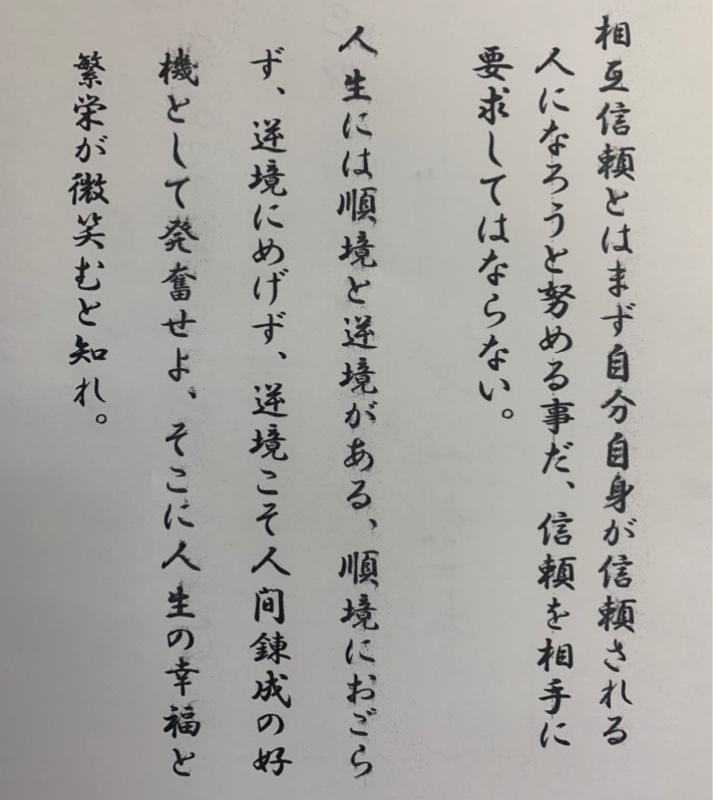 相互信頼とはまず自分自身が信頼される
人になろうと努める事だ、信頼を相手に
要求してはならない。
人生には順境と逆境がある、順境におごら
ず、逆境にめげず、逆境こそ人間錬成の好
機として発奮せよ、そこに人生の幸福と
繁栄が微笑むと知れ。